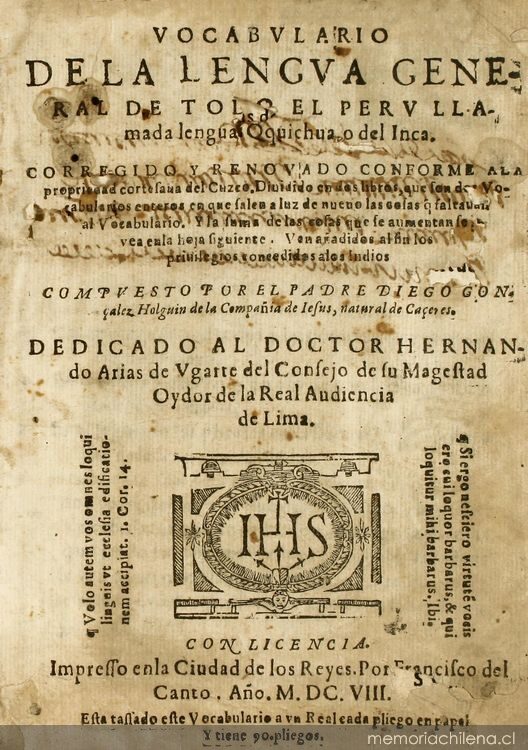 VOCABVLARIO
DE LA LENGVA GENE-
RAL DE TODO EL PERV LLA-
mada lengua Qquichua, o del Inca.
CORREGIDO Y RENOVADO CONFORME ALA
propriedad cortesana del Cuzco. Diuidido en dos libros, que son dos Vo-
cabularios enteros en que salen a luz de nueuo las cosas q̃ faltauan
al Vocabulario. Y la suma de las cosas que se aumentan se
vea enla hoja siguiente. Van añadidos al fin los
priuilegios concedidos alos Indios
COMPVESTO POR EL PADRE DIEGO GON-
çalez Holguin de la Compañia de Iesus, natural de Caçeres.
DEDICADO AL DOCTOR HERNAN-
do Arias de Vgarte del Consejo de su Magestad
Oydor de la Real Audiencia
de Lima.
¶ Volo autem vos omnes loqui
linguis vt ecclesia edificatio-
nem accipiat. 1. Cor. 14.
IHS
¶ Si ergo nesciero virtutẽ vocis
ero cui loquor barbarus, & qui
loquitur mihi barbarus, Ibi.
CON LICENCIA.
Impresso enla Ciudad de los Reyes. Por Francisco del
Canto. Año. M. DC. VIII.
Esta tassado este Vocabulario a vn Real cada pliego en papel
Y tiene 90. pliegos.
memoriachilena.cl